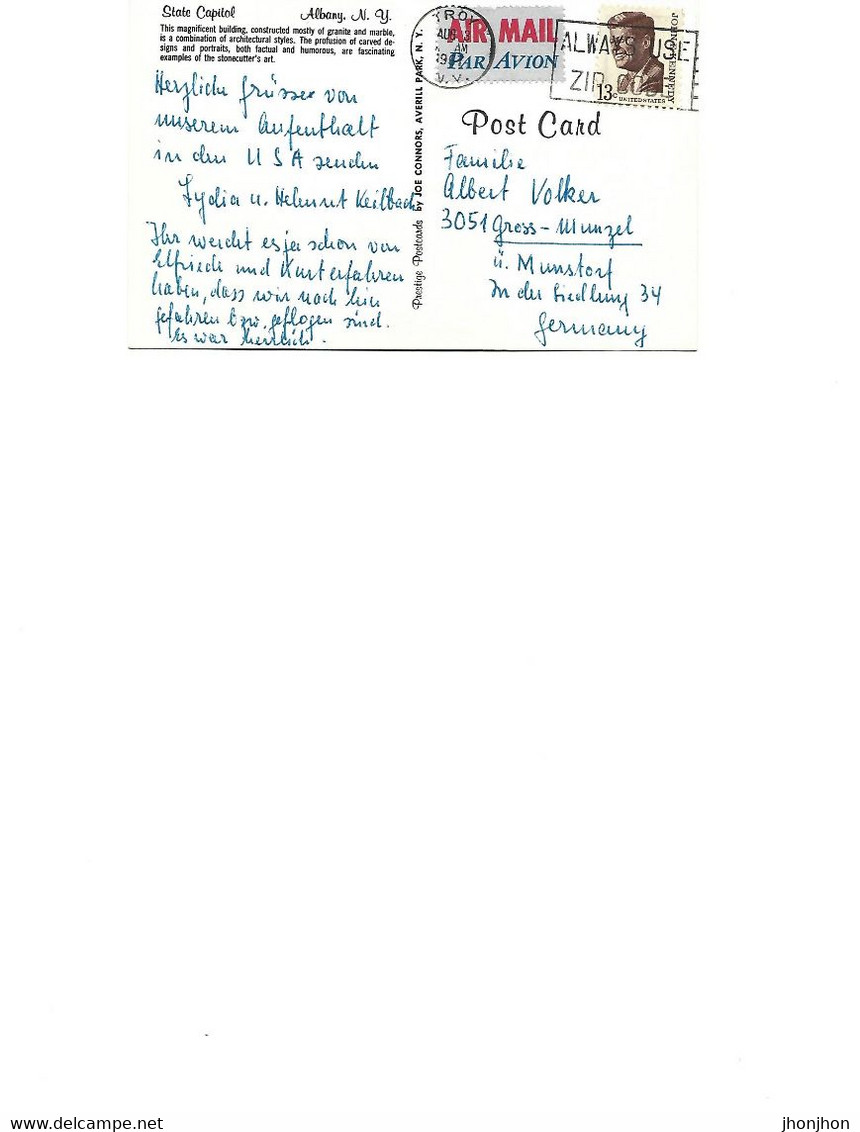 State Capitol Albany, N. Y.
This magnificent building, constructed mostly of granite and marble,
is a combination of architectural styles. The profusion of carved de-
signs and portraits, both factual and humorous, are fascinating
examples of the stonecutter's art.
Herzliche Grüsse von
unserem Aufenthalt
in den USA senden
Lydia u. Helmut Keilbach
Ihr werdet es ja schon von
Elfriede und Kurt erfahren
haben, dass wir nach hier
gefahren bzw. geflogen sind.
Es war herrlich.
Prestige Postcards by JOE CONNORS, AVERILL PARK, N. Y.
TROY
AUG
AM
N.Y.
AIR MAIL
PAR AVION
ALWAYS USE
ZIP CODE
JOHN F KENNEDY
13c UNITED STATES
Post Card
Familie
Albert Volker
3051 Gross-Munzel
ü. Munstorf
In der Siedlung 34
Germany
Delcampe.net
jhonjhon